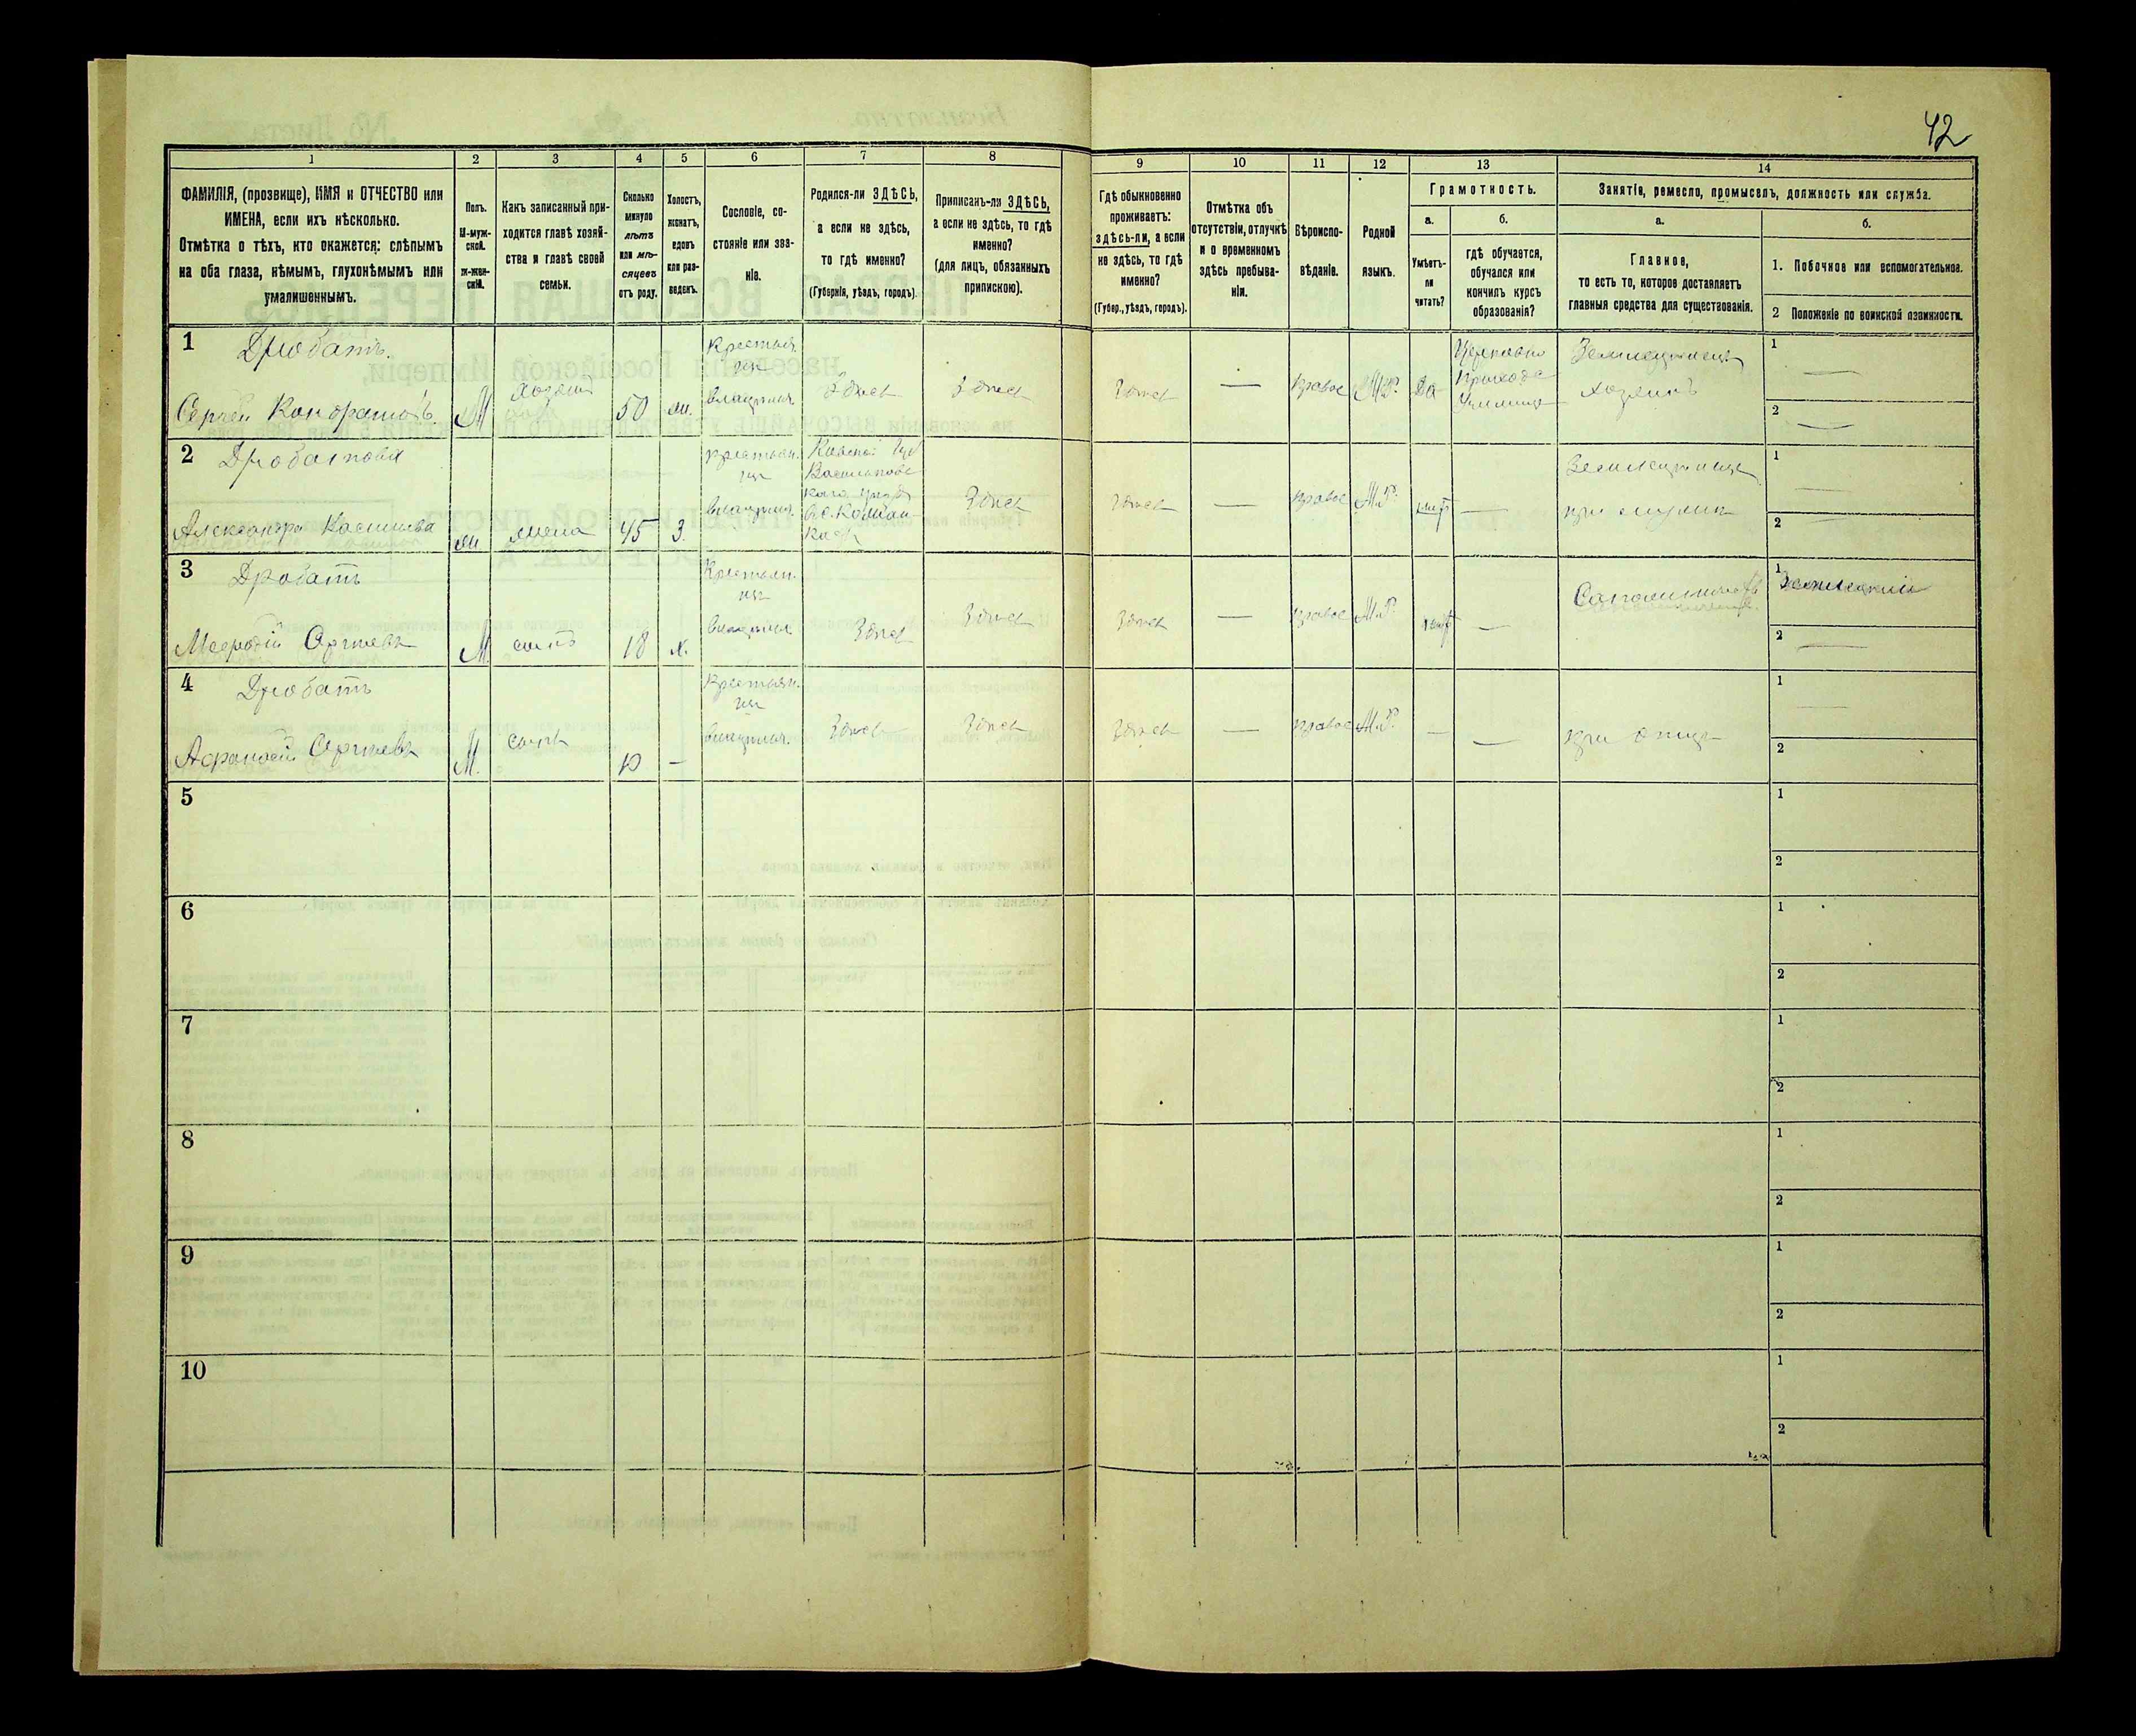 42
1 2 3 4 5 6 7 8 9 10 11 12 13 14
ФАМИЛІЯ, (прозвище), ИМЯ и ОТЧЕСТВО или
ИМЕНА, если ихъ нѣсколько.
Отмѣтка о тѣхъ, кто окажется: слѣпымъ
на оба глаза, нѣмымъ, глухонѣмымъ или
умалишеннымъ.
Полъ.
М-муж-
ской.
ж-жен-
скій.
Какъ записанный при-
ходится главѣ хозяй-
ства и главѣ своей
семьи.
Сколько
минуло
лѣтъ
или мѣ-
сяцевъ
отъ роду.
Холостъ,
женатъ,
вдовъ
или раз-
веденъ.
Сословіе, со-
стояніе или зва-
ніе.
Родился-ли ЗДѢСЬ,
а если не здѣсь,
то гдѣ именно?
(Губернія, уѣздъ, городъ).
Приписанъ-ли ЗДѢСЬ,
а если не здѣсь, то гдѣ
именно?
(для лицъ, обязанныхъ
припискою).
Гдѣ обыкновенно
проживаетъ:
здѣсь-ли, а если
не здѣсь, то гдѣ
именно?
(Губер., уѣздъ, городъ).
Отмѣтка объ
отсутствіи, отлучкѣ
и о временномъ
здѣсь пребыва-
ніи.
Вѣроиспо-
вѣданіе.
Родной
языкъ.
Грамотность.
а.
Умѣетъ-
ли
читать?
б.
гдѣ обучается,
обучался или
кончилъ курсъ
образованія?
Занятіе, ремесло, промыселъ, должность или служба.
а.
Главное,
то есть то, которое доставляетъ
главныя средства для существованія.
б.
1. Побочное или вспомогательное.
2 Положеніе по воинской повинности.
1 Дробатъ.
Сергѣй Кондратовъ
М
хозяинъ
50
жн.
Крестьян.
изъ
владѣльч.
Здѣсь
Здѣсь
Здѣсь
—
правос
М.Р.
Да
Церковно
Приходс
Училище
Земледѣлецъ
хозяинъ
1 —
2 —
2 Дробатова
Александра
жена
45
З.
крестьян.
изъ
владѣльч.
Кіевской Губ
Васильковс
каго уѣзда
Здѣсь
Здѣсь
—
правос
М.Р.
нѣт
—
при мужѣ
1 —
2 —
3 Дробатъ
Мефодій Сергѣевъ
М.
сынъ
18
х.
Крестьян.
изъ
владѣльч.
Здѣсь
Здѣсь
Здѣсь
—
правос
М.Р.
нѣт
—
1 Земледѣліе
2 —
4 Дробатъ
Афанасій Сергѣевъ
М.
сынъ
10
—
Крестьян.
изъ
владѣльч.
Здѣсь
Здѣсь
Здѣсь
—
правос
М.Р.
—
—
при отцѣ
1 —
2
5
1
2
6
1
2
7
1
2
8
1
2
9
1
2
10
1
2